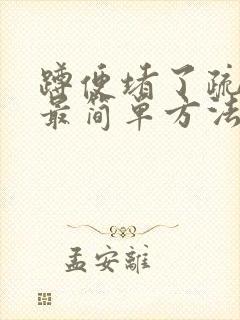 蹲便堵了疏
最简单方法
孟安離